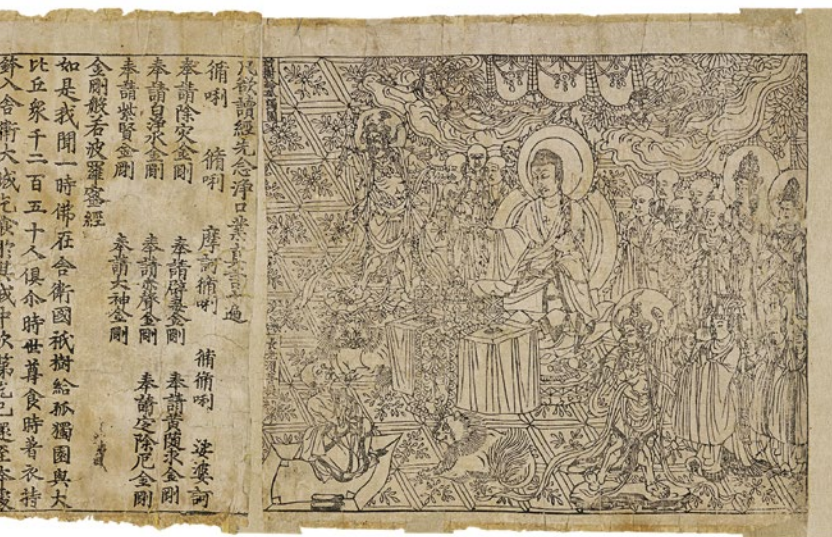 凡欲讀經先念淨口業真言一遍
脩唎 脩唎 摩訶脩唎 脩脩唎 娑婆訶
奉請除灾金剛 奉請辟毒金剛 奉請黄隨求金剛
奉請白淨水金剛 奉請赤聲金剛 奉請定除厄金剛
奉請紫賢金剛 奉請大神金剛
金剛般若波羅蜜經
如是我聞一時佛在舍衛國祇樹給孤獨園與大
比丘衆千二百五十人俱尒時世尊食時著衣持
鉢入舍衛大城乞食於其城中次第乞已還至本處